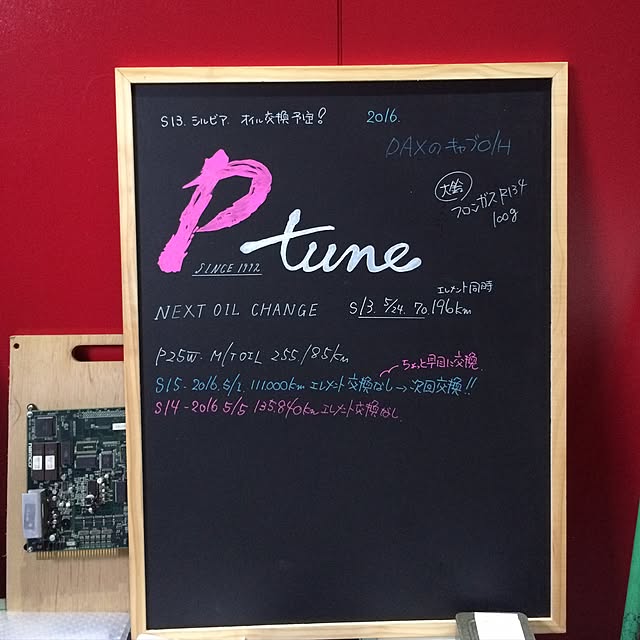 S13. シルビア. オイル交換予定?
2016.
DAXのキャブO/H
大鈴
フロンガスR134
100g
P tune
SINCE 1992
エレメント同時
NEXT OIL CHANGE S13. 5/24. 70.196km
P25W. M/T OIL 255.185km
ちょっと早目に交換.
S15-2016.5/2. 111000km エレメント交換なし→次回交換!!
S14-2016 5/5 135.840km エレメント交換なし.